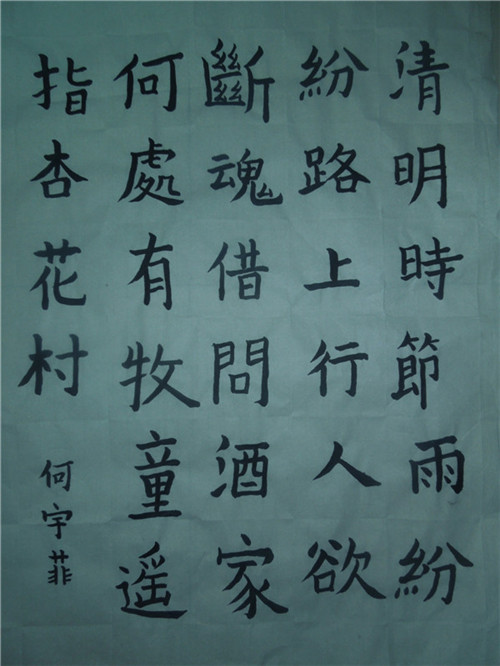 清明時節雨紛
紛路上行人欲
斷魂借問酒家
何處有牧童遥
指杏花村
何宇菲